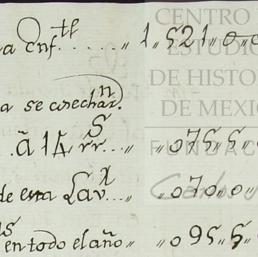 a Cnf.tl ...... „ 1,521„0„0
a se cosechar.n
â 14 rr.s ... „ „075„5„
de esta Lav.x ... „ „070„0„
en todo el año „ „095„5„
CENTRO
ESTUDIO
DE HISTO
DE MEXIC
FUNDAC